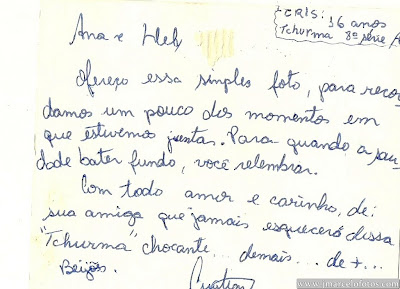 CRIS: 16 anos
Tchurma 8ª série
Ana e
Ofereço essa simples foto, para recor
damos um pouco dos momentos em
que estivemos juntas. Para quando a sau
dade bater fundo, você relembrar.
Com todo amor e carinho, de:
sua amiga que jamais esquecerá dessa
"Tchurma" chocante... demais... de +...
Beijos.
www.jmarcelofotos.com